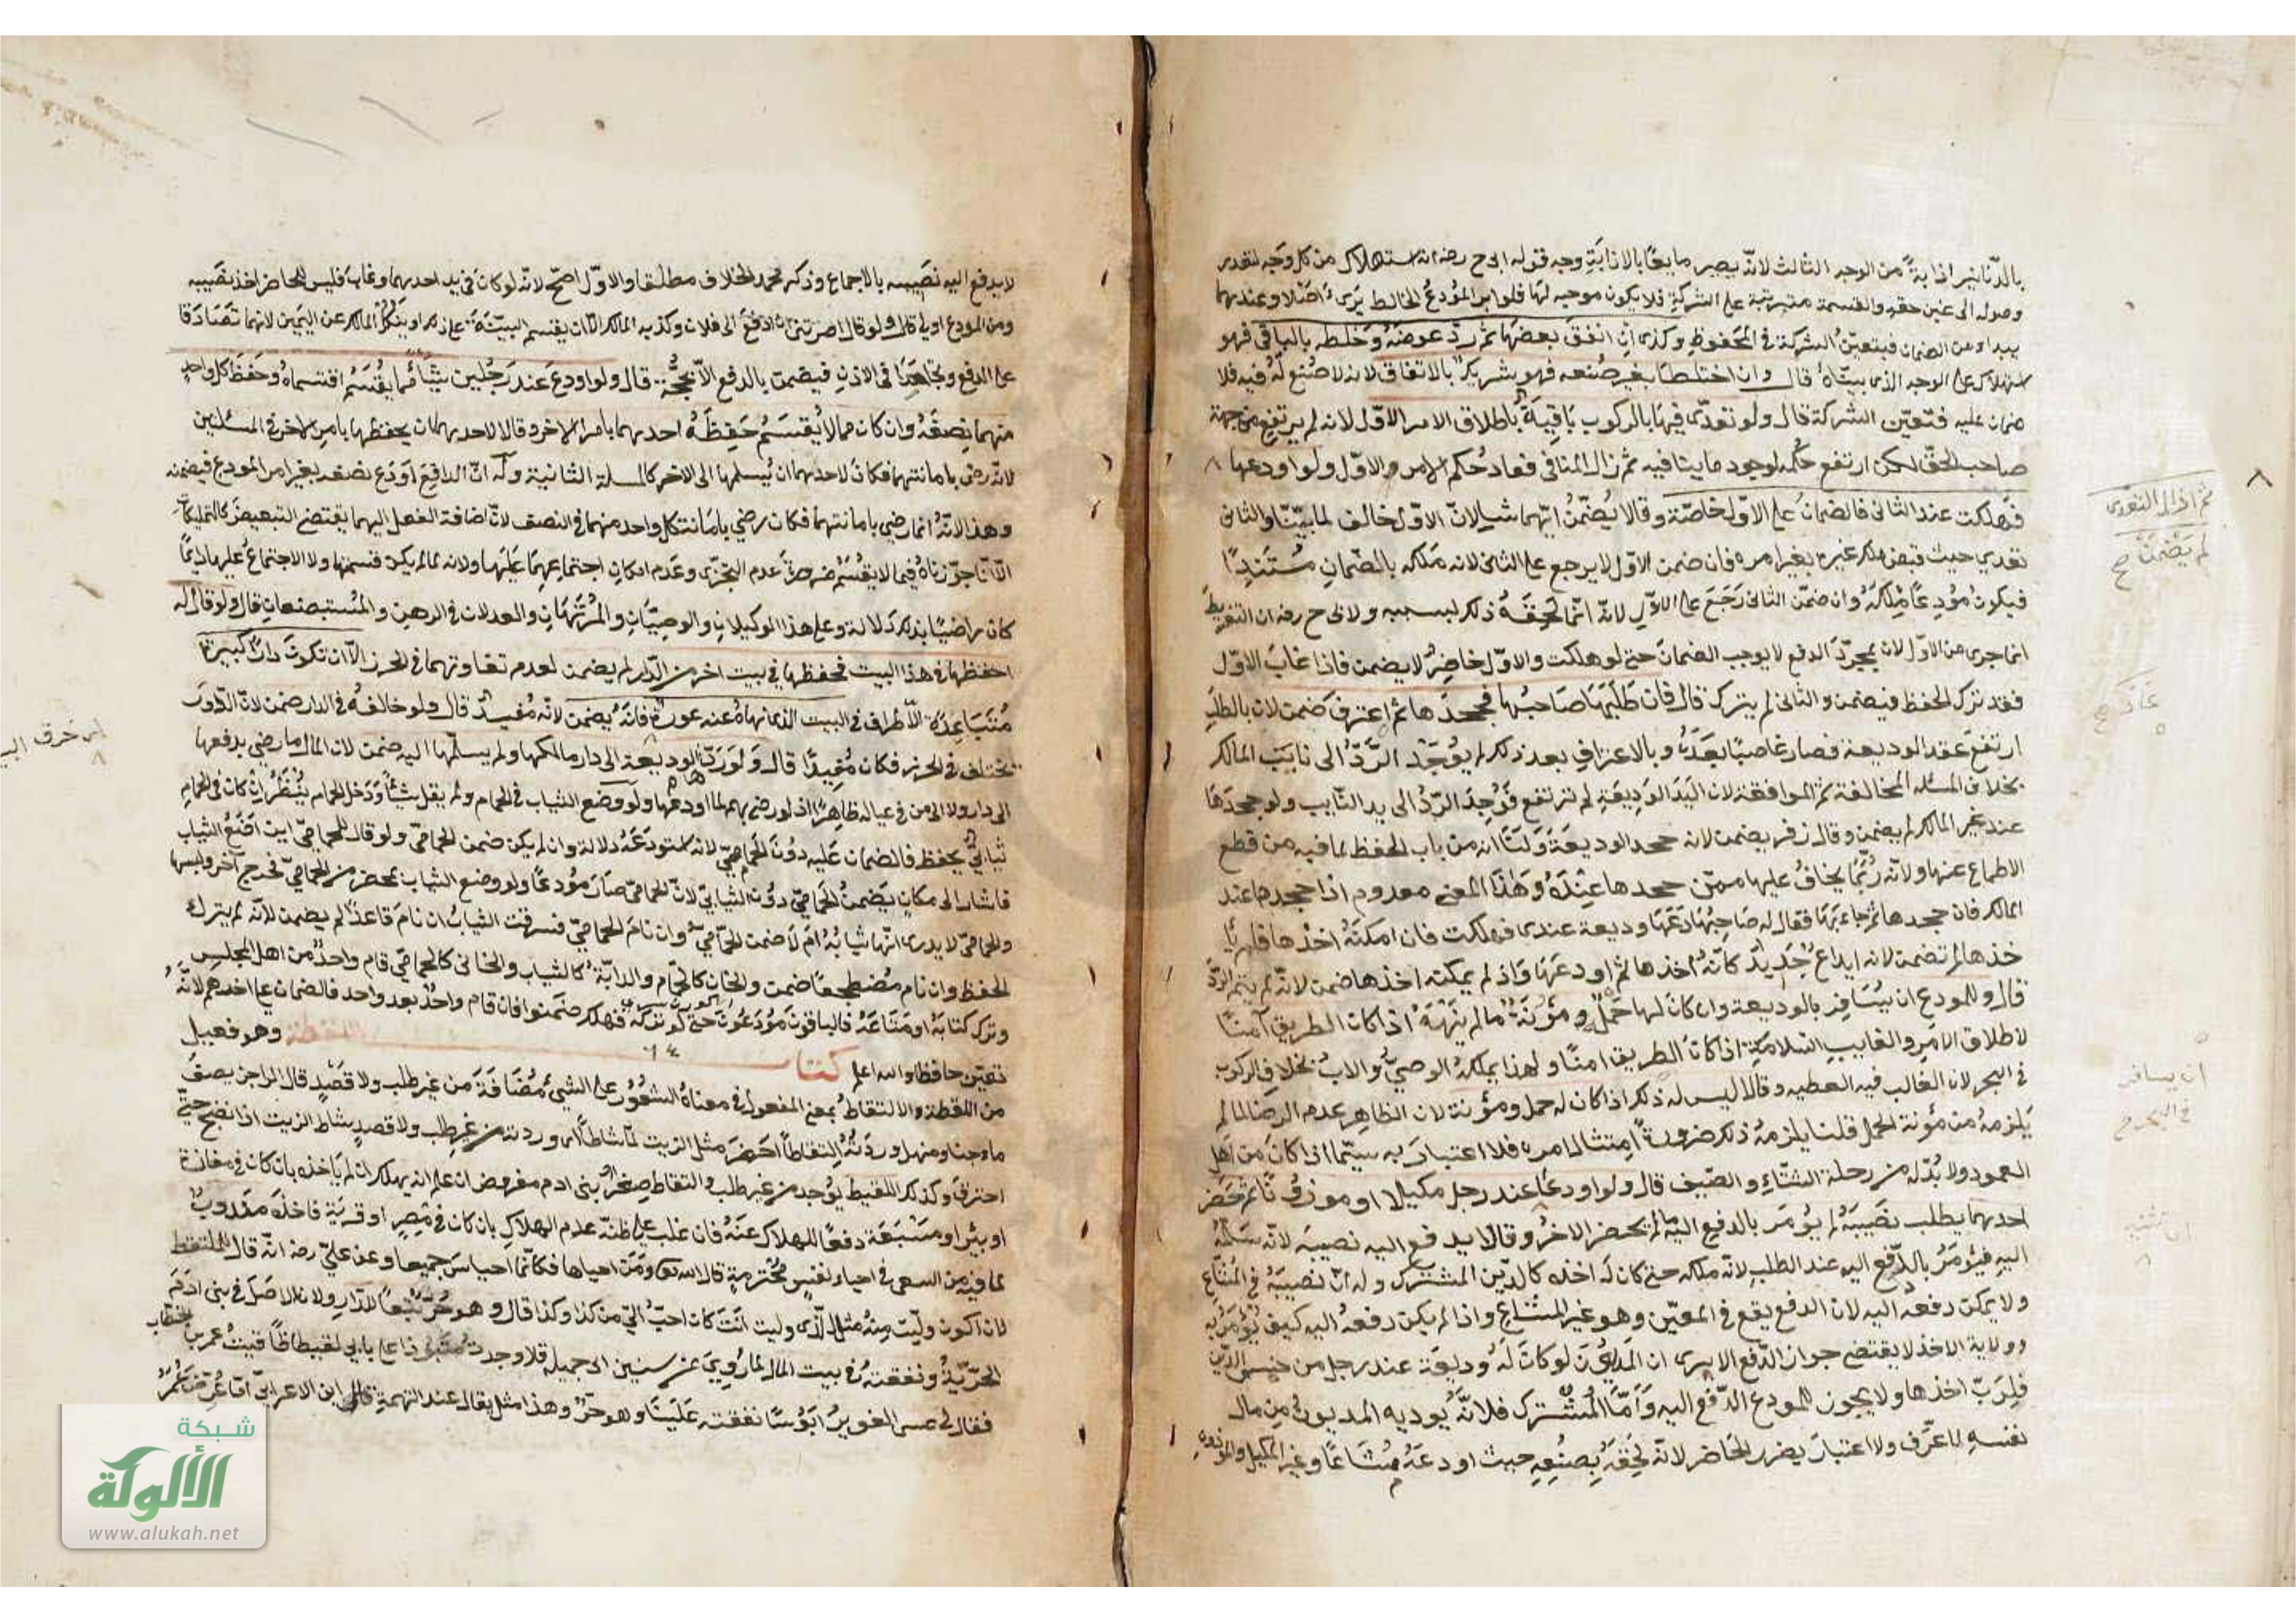 بالدنانير اذابة من الوجه الثالث لانه يصير مايعا بالاذابة وجه قوله ابى ح رضه انه استهلاك من كل وجه لتعذر
وصوله الى عين حقه والقسمة مترتبة على الشركة فلا يكون موجبه لها فلو ابرا المودع الخالط يرى اصلا وعندهما
يبرا من الضمان فيتعين الشركة فى المحفوظ وكذى ان انفق بعضها ثم رد عوضه وخلطه بالباقى فهو
استهلاك على الوجه الذى بيناه قال وان اختلطا بغير صنعه فهو شريك بالاتفاق لانه لا صنع له فيه فلا
ضمان عليه فتتعين الشركة قال ولو تعدى فيها بالركوب باقية باطلاق الامر الاول لانه لم يرتفع من جهة
صاحب الحق لكن ارتفع حكمه لوجود ما ينافيه ثم زال المنافى فعاد حكم الامر والاول ولو اودعها
فهلكت عند الثانى فالضمان على الاول خاصة وقالا يضمن ايهما شا لان الاول خالف لما بينا والثانى
تعدى حيث قبض ملك غيره بغير امره فان ضمن الاول لا يرجع على الثانى لانه ملكه بالضمان مستندا
فيكون مودعا ملكه وان ضمن الثانى رجع على الاول لانه انما لحقه ذلك بسببه ولابى ح رضه ان التفريط
انما جرى من الاول لان بمجرد الدفع لا يوجب الضمان حتى لو هلكت والاول حاضر لا يضمن فاذا غاب الاول
فقد ترك الحفظ فيضمن والثانى لم يترك قال فان طلبها صاحبها فجحدها ثم اعترف ضمن لان بالطلب
ارتفع عقد الوديعة فصار غاصبا بعده وبالاعتراف بعد ذلك لم يوجد الرد الى نايب المالك
بخلاف المسئلة المخالفة ثم الموافقة لان اليد الوديعة لم ترتفع فوجد الرد الى يد النايب ولو جحدها
عند غير المالك لم يضمن وقال زفر يضمن لانه جحد الوديعة ولنا انه من باب الحفظ لما فيه من قطع
الاطماع عنها ولانه ربما يخاف عليها ممن جحدها عنده وهذا المعنى معدوم اذا جحدها عند
المالك فان جحدها ثم جاء بها فقال له صاحبها دعها وديعة عندى فهلكت فان امكنه اخذها فلم
خذها لم تضمن لانه ايداع جديد كانه اخذها ثم اودعها واذ لم يمكنه اخذها ضمن لانه لم يتم الرد
قال وللمودع ان يسافر بالوديعة وان كان لها حمل ومؤنة ما لم ينهه اذا كان الطريق آمنا
لاطلاق الامر والغايب السلامة اذا كان الطريق امنا ولهذا يملكه الوصى والاب بخلاف الركوب
فى البحر لان الغالب فيه العطب وقالا ليس له ذلك اذا كان له حمل ومؤنة لان الظاهر عدم الرضا لما
يلزمه من مؤنة الحمل قلنا يلزمه ذلك ضرورة امتثال امره فلا اعتبار به سيما اذا كان من اهل
العمود ولا بد له من رحلة الشتاء والصيف قال ولو اودعا عند رجل مكيلا او موزونا ثم حضر
احدهما يطلب نصيبه لم يؤمر بالدفع اليه ما لم يحضر الاخر وقالا يدفع اليه نصيبه لانه سلمه
اليه فيؤمر بالدفع اليه عند الطلب لانه ملكه حتى كان له اخذه كالدين المشترك وله ان نصيبه فى المشاع
ولا يمكن دفعه اليه لان الدفع يقع فى المعين وهو غير المشاع واذا لم يكن دفعه اليه كيف يؤمر به
وولاية الاخذ لا يقتضى جواز الدفع الا يرى ان المديون لو كان له وديعة عند رجل من جنس الدين
فلرب اخذها ولا يجوز للمودع الدفع اليه واما المشترك فلانه يوديه المديون من مال
نفسه لما عرف ولا اعتبار بضرر الحاضر لانه لحقه بصنعه حيث اودعه مشاعا وغير المكيل والموزون
ثم اذا زال التعدى
لم يضمن صح
ان يسافر
فى البحر
لا يدفع اليه نصيبه بالاجماع وذكر محمد الخلاف مطلقا والاول اصح لانه لو كان فى يد احدهما وغاب فليس للحاضر اخذ نصيبه
ومن المودع اولى قال ولو قال امرتنى ان ادفع الى فلان وكذبه المالك الا ان يقيم البينة على ذلك او ينكل المالك عن اليمين لانهما تصادقا
على الدفع وتجاحدا فى الاذن فيضمن بالدفع الا بحجة قال ولو اودع عند رجلين شيئا مما يقسم اقتسماه وحفظ كل واحد
منهما نصفه وان كان مما لا يقسم حفظه احدهما بامر الاخر وقالا لاحدهما ان يحفظها بامر الاخر فى المسئلتين
لانه رضى بامانتهما فكان لاحدهما ان يسلمها الى الاخر كالمسئلة الثانية وله ان الدافع اودع نصفه بغير امر المودع فيضمنه
وهذا لانه انما رضى بامانتهما فكان رضى بامانة كل واحد منهما فى النصف لان اضافة الفعل اليهما يقتضى التبعيض كالتمليكات
الا انا جوزناه فيما لا يقسم ضرورة عدم التجزى وعدم امكان اجتماعهما عليها ولانه لما لم يكن قسمتها ولا الاجتماع عليها دايما
كان راضيا بذلك دلالة وعلى هذا الوكيلان والوصيان والمرتهنان والعدلان فى الرهن والمستبضعان قال ولو قال له
احفظها فى هذا البيت فحفظها فى بيت اخر من الدار لم يضمن لعدم تفاوتهما فى الحرز الا ان تكون دارا كبيرة
متباعدة الاطراف فى البيت الذى نهاه عنه عورة فانه يضمن لانه مفيد قال ولو خالفه فى الدار ضمن لان الدور
تختلف فى الحرز فكان مفيدا قال ولو رد الوديعة الى دار مالكها ولم يسلمها اليه ضمن لان المالك ما رضى بدفعها
الى دار ولا الى من فى عياله ظاهرا اذ لو رضى بهم لما اودعها ولو وضع الثياب فى الحمام ولم يقل شيئا ودخل الحمام ينظر ان كان فى الحمام
ثيابى يحفظ فالضمان عليه دون الحمامى لانه استودعه دلالة وان لم يكن ضمن الحمامى ولو قال للحمامى اين اضع الثياب
فاشار الى مكان يضمن الحمامى دون الثيابى لان الحمامى صار مودعا ولو وضع الثياب بمحضر من الحمامى فخرج آخر ولبسها
والحمامى لا يدرى انها ثيابه ام لا ضمن الحمامى وان نام الحمامى فسرقت الثياب ان نام قاعدا لم يضمن لانه لم يترك
الحفظ وان نام مضطجعا ضمن والخان كالحمام والدابة كالثياب والخانى كالحمامى قام واحد من اهل المجلس
وترك كتابه او متاعه فالباقون مودعون حتى لو تركه فهلك ضمنوا فان قام واحد بعد واحد فالضمان على اخرهم لانه
تعين حافظا والله اعلم كتاب اللقطة وهو فعيل
من اللقطة والالتقاط بمعنى المفعول فى معناه الشعور على الشيء مضافة من غير طلب ولا قصد قال الراجز يصف
ماء ومنهل وردته التقاطا اخضر مثل الزيت لما شاطا اى وردته من غير طلب ولا قصد يشاط الزيت اذا نضج حتى
احترق وكذلك اللقيط يوجد من غير طلب والتقاط صغار بنى ادم مفروض ان علم انه يهلك ان لم ياخذه بان كان فى مفازة
او بئر او مسبعة دفعا للهلاك عنه فان غلب على ظنه عدم الهلاك بان كان فى مصر او قرية فاخذه مندوب
لما فيه من السعى فى احياء نفس محترمة قال الله تعالى ومن احياها فكانما احيا الناس جميعا وعن على رضه انه قال للملتقط
لان اكون وليت منه مثل الذى وليت انت كان احب الى من كذا وكذا قال وهو حر تبعا للدار ولان الاصل فى بنى ادم
الحرية ونفقته فى بيت المال لما روى عن سنين ابى جميلة قال وجدت منبوذا على بابى لقيطا فاتيت عمر بن الخطاب
فقال لى عسى الغوير ابؤسا نفقته علينا وهو حر وهذا مثل يقال عند التهمة قال ابن الاعرابى
شبكة
الألوكة
www.alukah.net